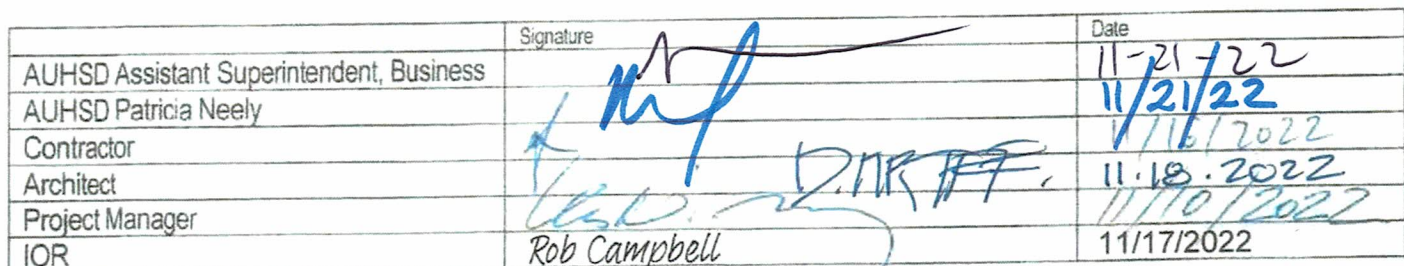 Signature Date
AUHSD Assistant Superintendent, Business 11-21-22
AUHSD Patricia Neely 11/21/22
Contractor 11/16/2022
Architect 11.18.2022
Project Manager 11/10/2022
IOR Rob Campbell 11/17/2022